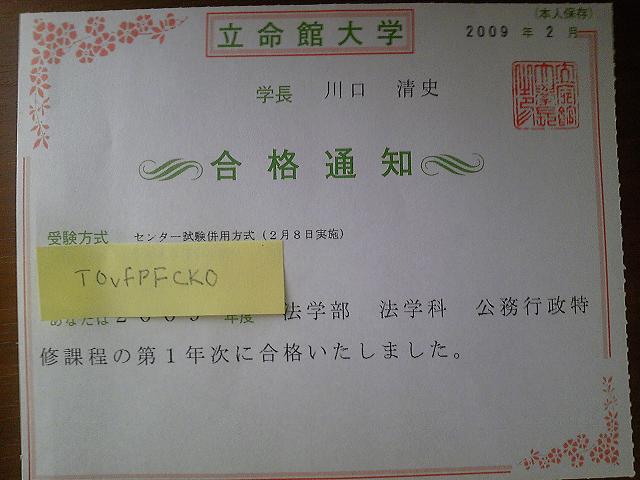 (本人保存)
立命館大学
2009 年 2 月
学長 川口 清史
合格通知
受験方式 センター試験併用方式(2月8日実施)
TOvfPFCKO
あなたは2009年度 法学部 法学科 公務行政特
修課程の第1年次に合格いたしました。